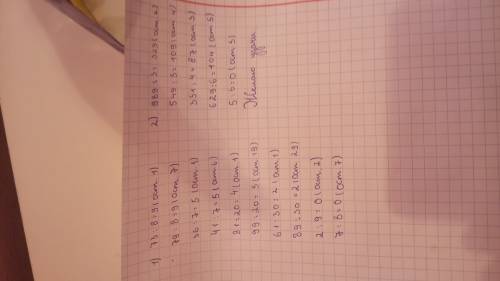 1) 73:8=9(ост.1)
79:8=9(ост.7)
36:7=5(ост.1)
41:7=5(ост.6)
81:20=4(ост.1)
99:20=3(ост.19)
61:30=2(ост1)
89:30=2(ост29)
2:9=0(ост.2)
7:8=0(ост7)
2) 989:3=329(ост.2)
549:5=109(ост4)
351:4=87(ост3)
629:6=104(ост5)
5:6=0(ост5)
Желаю удачи